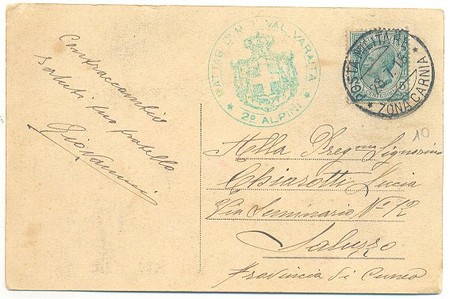 Contraccambio
saluti suo fratello
Giovanni
BATTAGL. VAL VARAITA
* 2º ALPINI *
POSTA MILITARE
* ZONA CARNIA *
10
Alla Preg.ma Signorina
Chiarotti Lucia
Via Seminario Nº 12
Saluzzo
Provincia di Cuneo